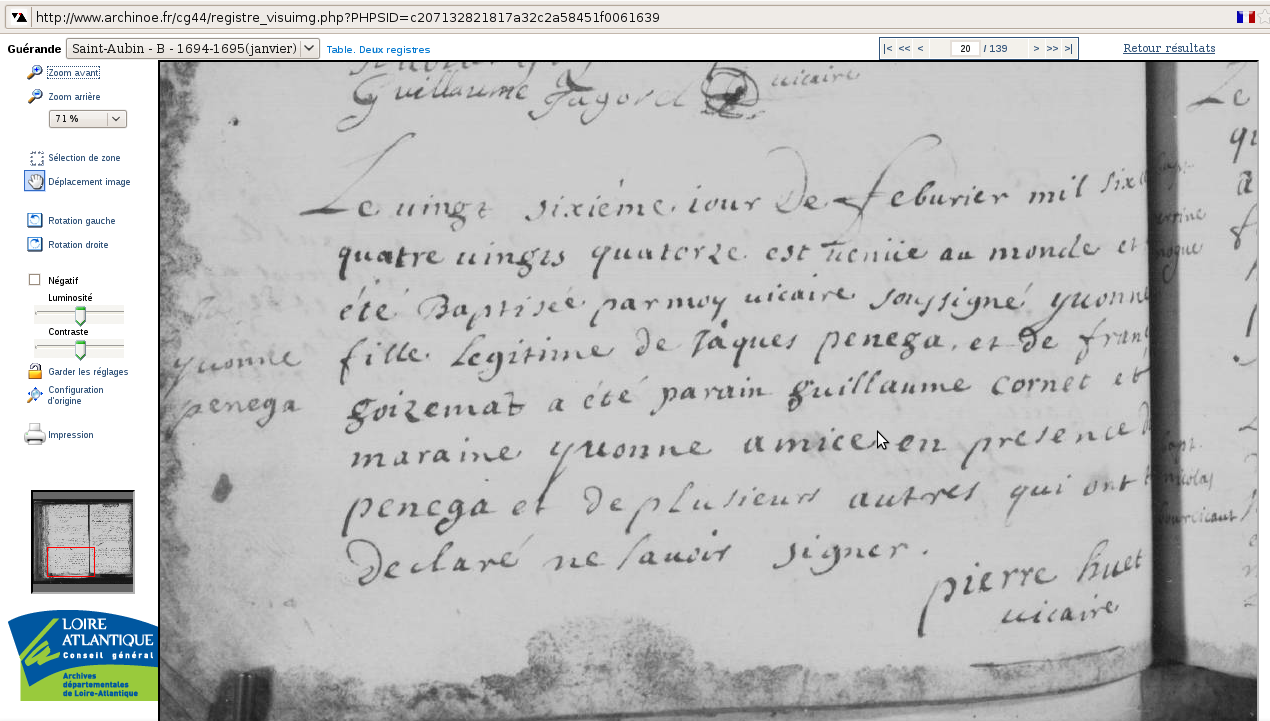 http://www.archinoe.fr/cg44/registre_visuimg.php?PHPSID=c207132821817a32c2a58451f0061639
Guérande Saint-Aubin - B - 1694-1695(janvier) Table. Deux registres |< << < 20 / 139 > >> >| Retour résultats
Zoom avant
Zoom arrière
71 %
Sélection de zone
Déplacement image
Rotation gauche
Rotation droite
Négatif
Luminosité
Contraste
Garder les réglages
Configuration
d'origine
Impression
LOIRE
ATLANTIQUE
Conseil général
Archives
départementales
de Loire-Atlantique
Guillaume Jagorel uicaire
Le uingt sixiéme iour De feburier mil six
quatre uingts quatorze est uenüe au monde et
été Baptisée par moy uicaire soussigné yuonne
fille Legitime de Jàques penega et de fran
goizemat a été parain guillaume cornet et
maraine yuonne amice en presence
penega et De plusieurs autres qui ont
Declaré ne sauoir signer.
pierre huet
uicaire
yuonne
penega
nicolas